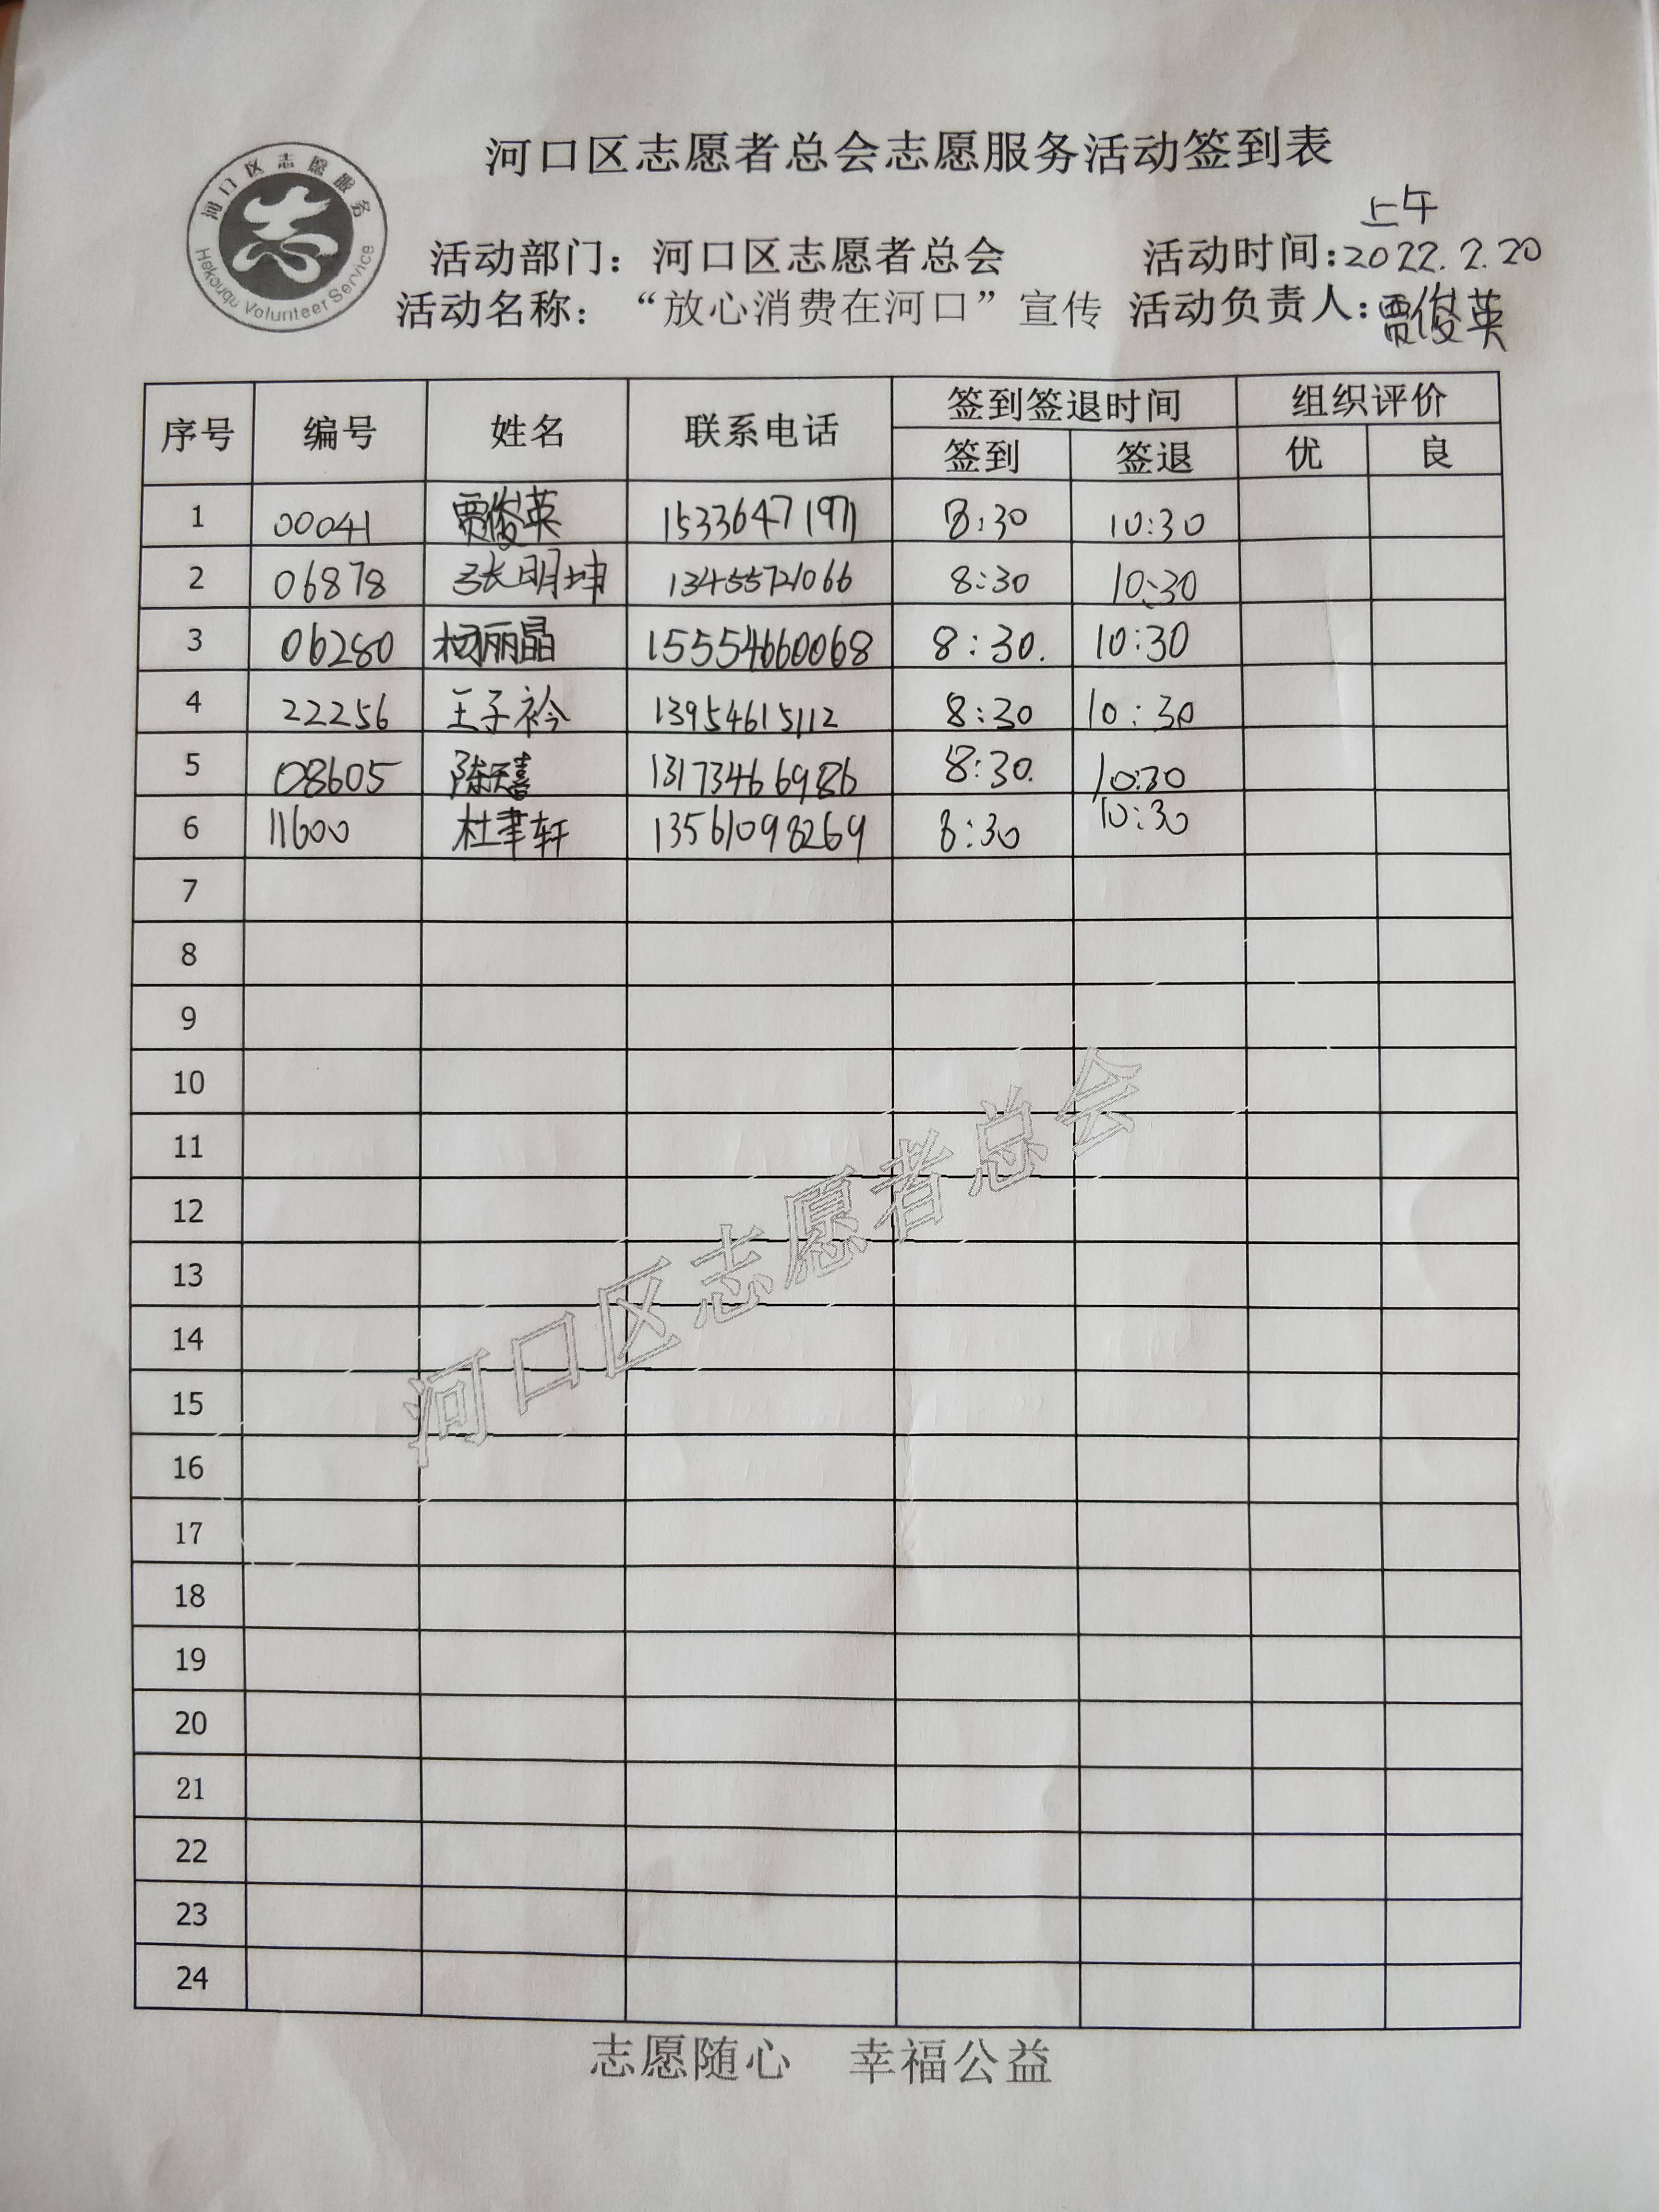 河口区志愿者总会志愿服务活动签到表
河口区志愿服务
Hekouqu Volunteer Service
上午
活动部门：河口区志愿者总会 活动时间:2022.2.20
活动名称：“放心消费在河口”宣传 活动负责人:贾俊英
序号 编号 姓名 联系电话 签到签退时间 组织评价
签到 签退 优 良
1 00041 贾俊英 15336471971 8:30 10:30
2 06878 张明坤 13455721066 8:30 10:30
3 06280 杨丽晶 15554660068 8:30. 10:30
4 22256 王子衿 13954615112 8:30 10:30
5 08605 陈天禧 13173466986 8:30. 10:30
6 11600 杜聿轩 13561098269 8:30 10:30
7
8
9
10
11
12
13
14
15
16
17
18
19
20
21
22
23
24
河口区志愿者总会
志愿随心 幸福公益